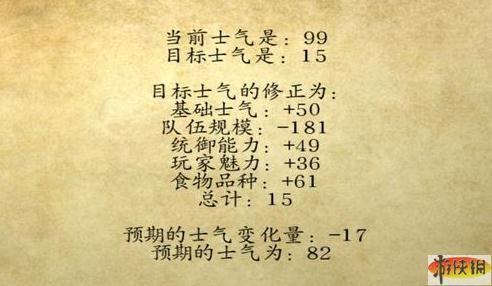 当前士气是：99
目标士气是：15
目标士气的修正为：
基础士气：+50
队伍规模：-181
统御能力：+49
玩家魅力：+36
食物品种：+61
总计：15
预期的士气变化量：-17
预期的士气为：82
游侠网